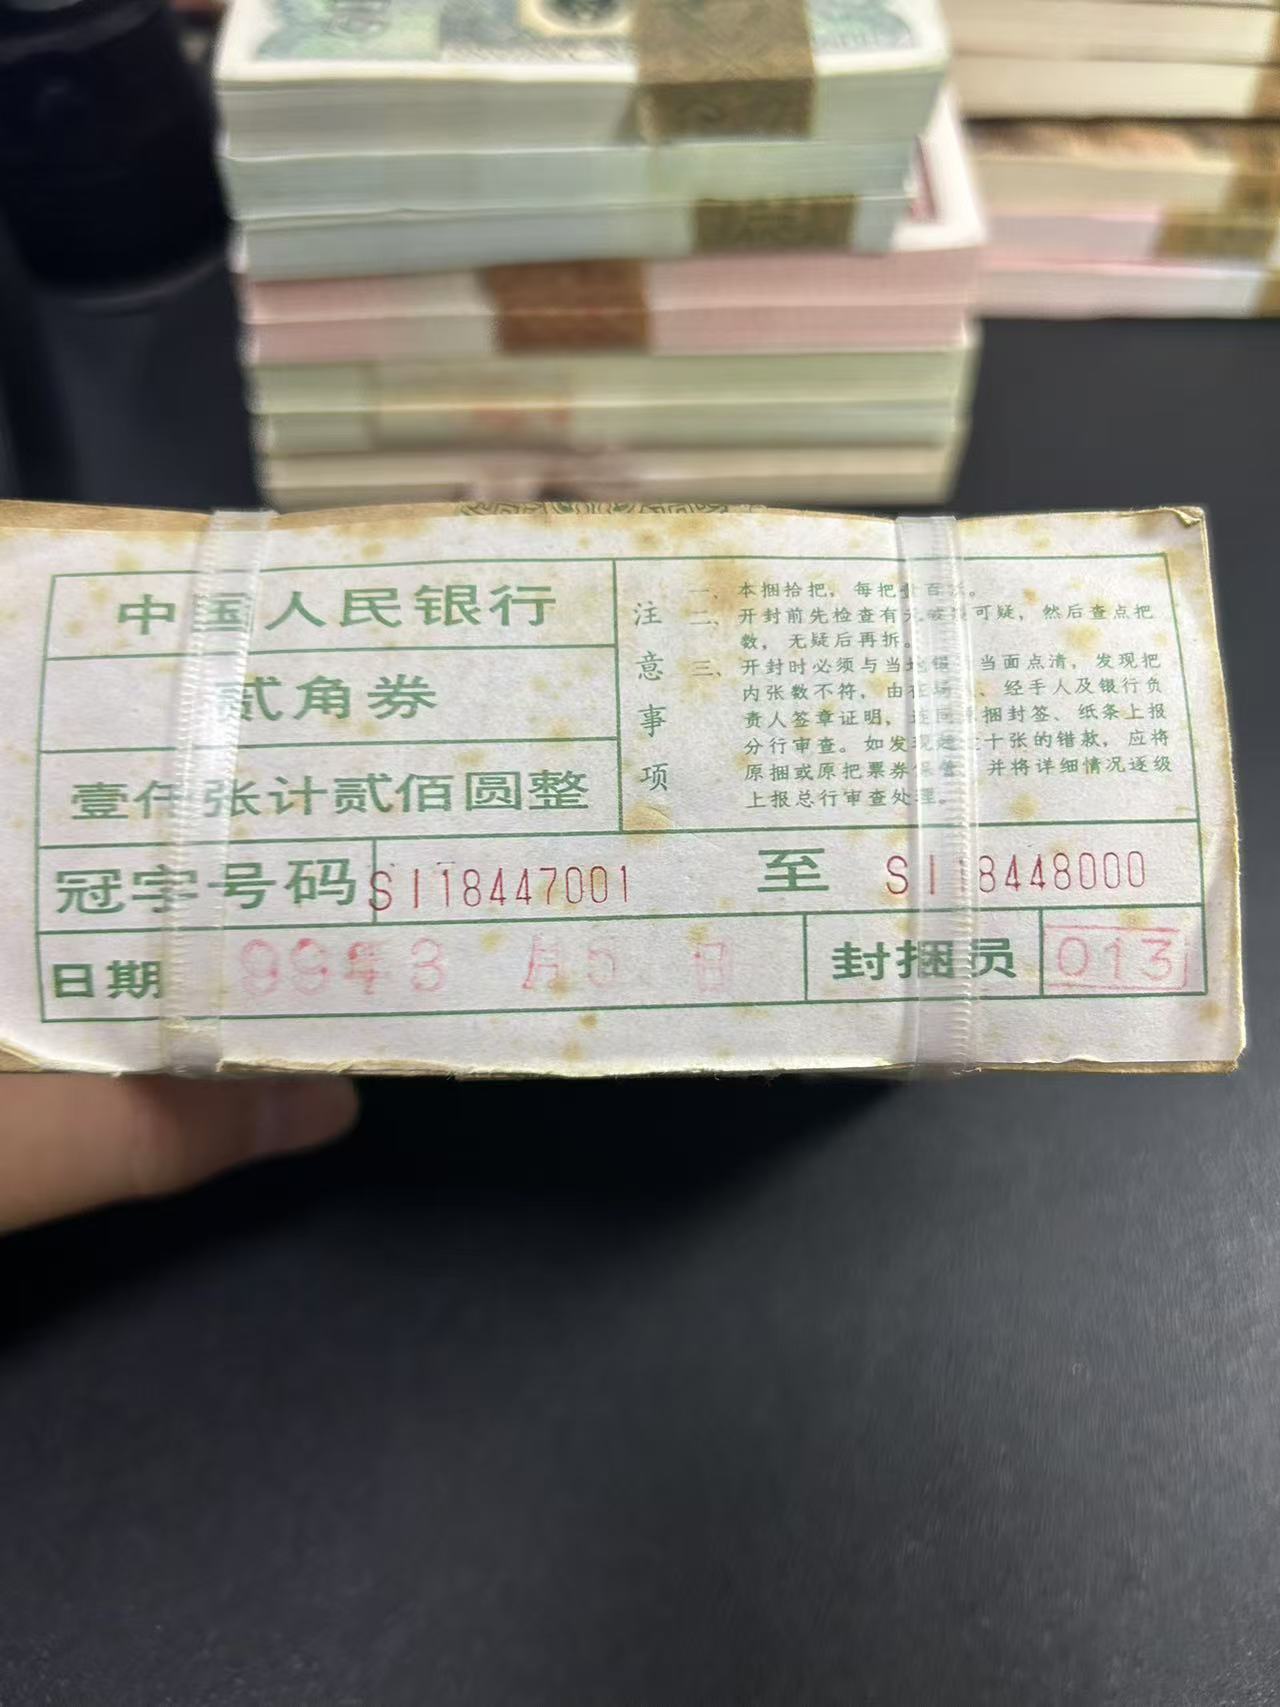 中国人民银行
贰角券
壹仟张计贰佰圆整
注意事项
一、本捆拾把，每把壹百张。
二、开封前先检查有无破损可疑，然后查点把
数，无疑后再拆。
三、开封时必须与当地银行当面点清，发现把
内张数不符，由在场人、经手人及银行负
责人签章证明，连同原捆封签、纸条上报
分行审查。如发现 十张的错款，应将
原捆或原把票券保管，并将详细情况逐级
上报总行审查处理。
冠字号码 SI18447001 至 SI18448000
日期 99年3月5日 封捆员 013